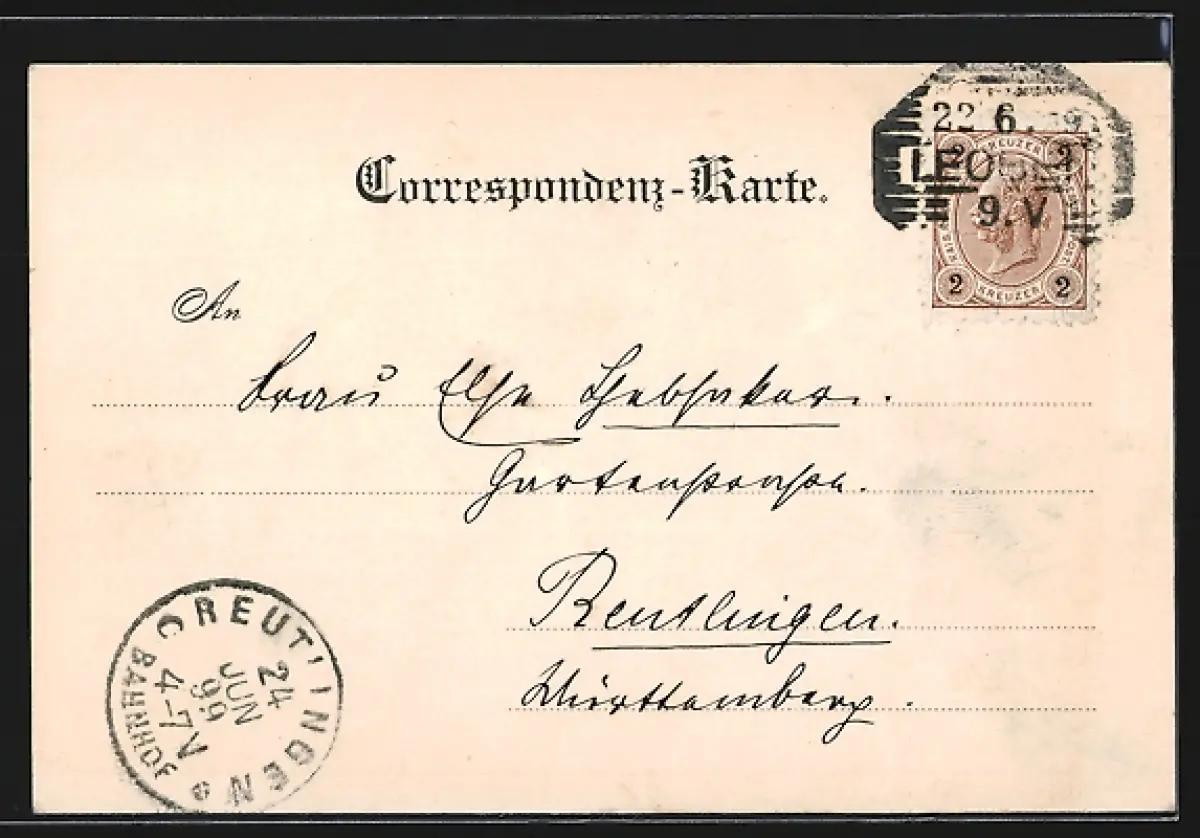 22 6. 9
LEOBEN
9. V
2 KREUZER 2
2 KREUZER 2
Correspondenz-Karte.
An
Frau Else
Gartenstrasse.
Reutlingen.
Württemberg.
REUTLINGEN
BAHNHOF
24
JUN
99
4-7 N